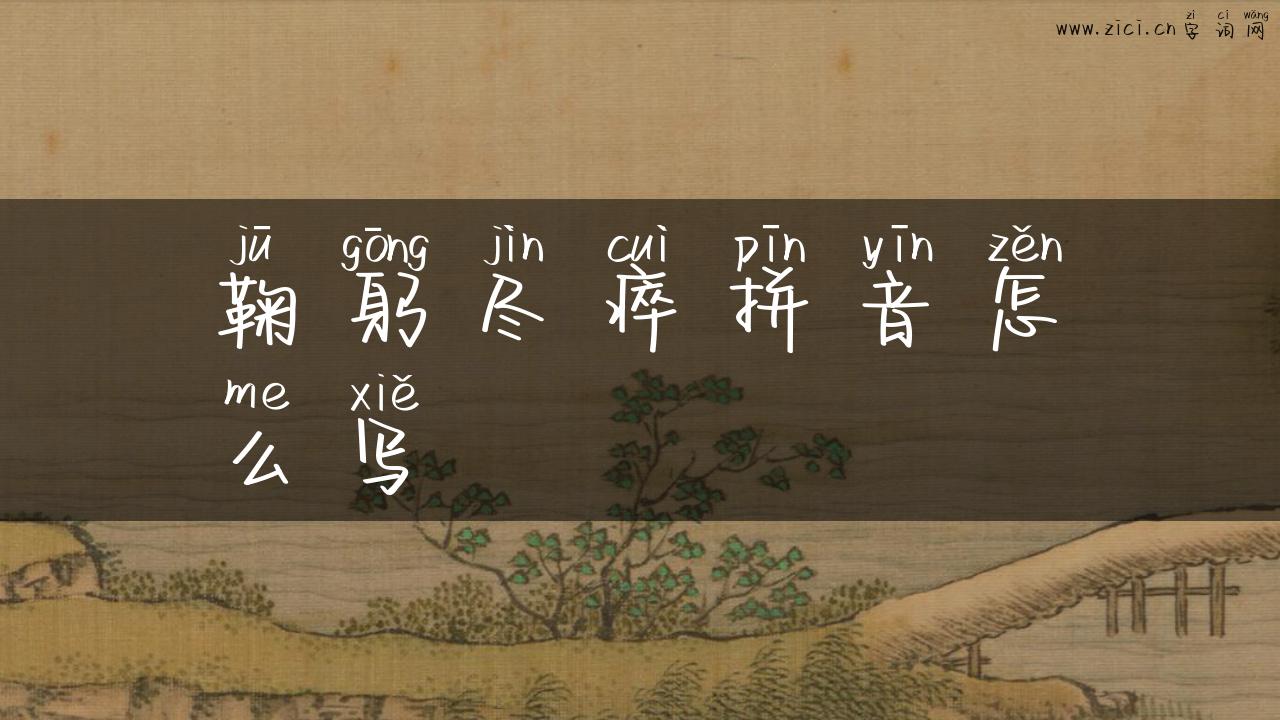 zì cí wǎng
www.zici.cn 字 词 网
jū gōng jìn cuì pīn yīn zěn
鞠 躬 尽 瘁 拼 音 怎
me xiě
么 写